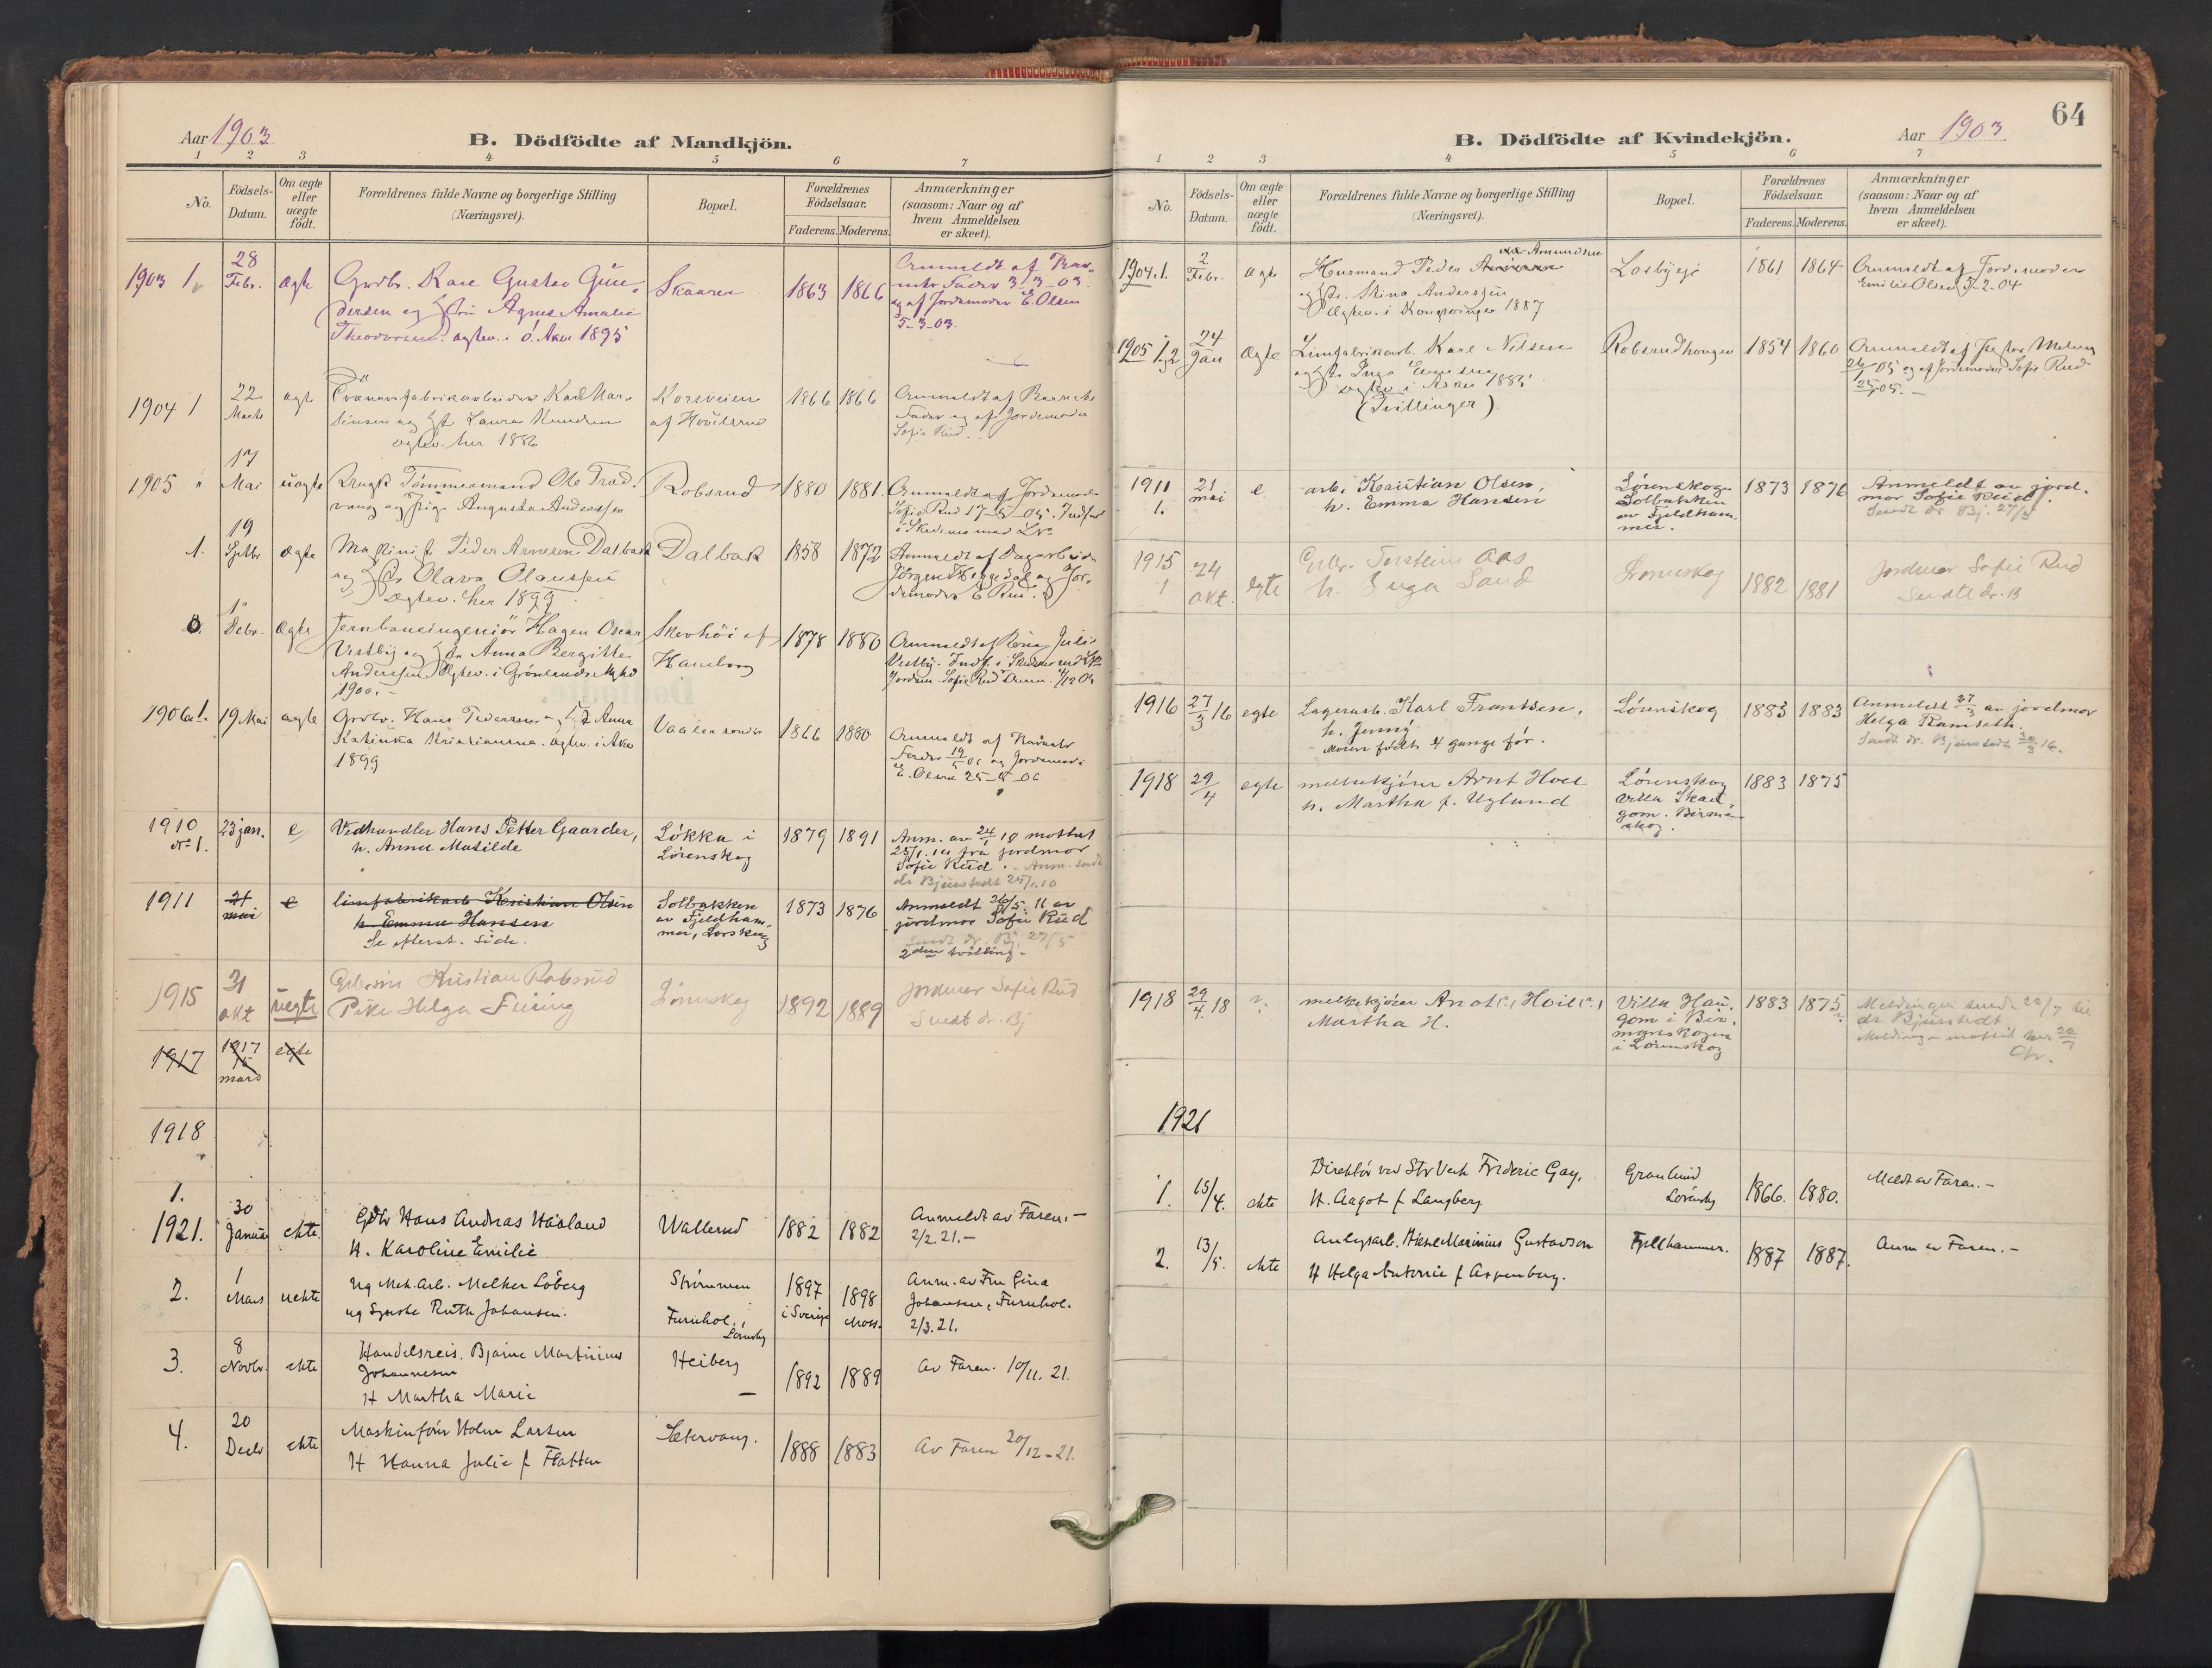 Aar 1903
B. Dödfödte af Mandkjön.
1 2 3 4 5 6 7
No.
Födsels-
Datum.
Om ægte
eller
uægte
födt.
Forældrenes fulde Navne og borgerlige Stilling
(Næringsvei).
Bopæl.
Forældrenes
Födselsaar.
Faderens. Moderens.
Anmærkninger
(saasom: Naar og af
hvem Anmeldelsen
er skeet).
1903 1
28
Febr.
ægte
Grdbr. Karl Gustav Gun-
dersen og Agnes Amalie
Theodorsen. ægtev. i Ö. Aker 1895
Skaarer
1863 1866
Anmeldt af Bar-
nets Fader 3-3-03.
og af Jordemoder E. Olsen
5-3-03.
1904 1
22
Marts
ægte
Karl Mar-
tinsen og Laura Knudsen
ægtev. her 1886
Korsveien
af Höilerud
1866 1866
Anmeldt af Barnets
Fader og af Jordemoder
Sofie Rud.
1905
17
Mai
uægte
Ungk. Tömmermand Ole
og Pige Augusta Anderssen
Robsrud
1880 1881.
Anmeldt af Jordemoder
Sofie Rud 17-5-05.
1.
19
Septbr
ægte
Maskinist Peder Arnesen Dalbak
og Olava Olaussen
ægtev. her 1899
Dalbak
1858 1872
Anmeldt af
Jörgen Heggedal og Jor-
demoder E. Rud.
Debr.
ægte
Jernbaneingeniör Hagen Oscar
Vestby og Anna Bergitte
Anderssen Ægtev. i Grönlands Mghd
1900.-
af
Haneborg
1878 1880
Anmeldt af
Vestby.
Jordem. Sofie Rud
1906 1.
19 Mai
ægte
Grdbr. Hans Pedersen og Anna
Katinka Kristiansen. ægtev. i Aker
1899
1866 1880
Anmeldt af Barnets
Fader 19/5 06 og Jordemoder
E. Olsen 25-5-06
1910
No 1.
23 jan.
e
Vedhandler Hans Petter Gaarder,
h. Anna Matilde
Løkka i
Lørenskog
1879 1891
Anm. av 24/1 10 mottat
25/1.10 fra jordmor
Sofie Rud. Anm. sendt
dr Bjürstedt 25/1.10
1911
21
mai
e
limfabrikarb Kristian Olsen
h. Emma Hansen
Se efterst. side.
Solbakken
av Fjeldham-
mer, Lørskog
1873 1876
Anmeldt 26/5. 11 av
jordmor Sofie Rud
Sendt dr. Bj. 27/5
2den tvilling -
1915
31
okt
uegte
Kristian Robsrud
Pike Helga
Lørenskog
1892 1889
Jordmor Sofie Rud
Sendt dr. Bj
1917
1917
15
mars
egte
1918
1.
1921.
30
Januar
ekte.
Gdbr Hans Andreas Haaland
H. Karoline Emilie
Wallerud
1882 1882
Anmeldt av Faren.-
2/2.21.-
2.
1
Mars
uekte
Ug Mek.Arb. Melker Löberg
ug Syerske Ruth Johansen.
Strömmen
Furuhol.,
Lörenskg
1897
i Sverige
1898
Moss.
Anm. av Fru Gina
Johansen, Furuhol.
2/3.21.
3.
8
Novbr.
ekte
Handelsreis. Bjarne Martinius
Johannesen
H Martha Marie
Heiberg
-
1892 1889
Av Faren. 10/11. 21.
4.
20
Decbr
ekte
Maskinförer Holm Larsen
H Hanna Julie f Flatten
Sætervang.
1888 1883
Av Faren 20/12-21.
64
B. Dödfödte af Kvindekjön.
Aar 1903
1 2 3 4 5 6 7
No.
Födsels-
Datum.
Om ægte
eller
uægte
födt.
Forældrenes fulde Navne og borgerlige Stilling
(Næringsvei).
Bopæl.
Forældrenes
Födselsaar.
Faderens. Moderens.
Anmærkninger
(saasom: Naar og af
hvem Anmeldelsen
er skeet).
1904. 1.
2
Febr.
ægte
Amundsen
Husmand Peder
og Stina Anderssen
Ægtev. i Kongsvinger 1887
Losbyeie
1861 1864
Anmeldt af Jordemoder
Emilie Olsen 5-2-04
1905 1 og 2
24
Jan
Ægte
Limfabrikarb. Karl Nilsen
og Inga Evensen
ægtev i Asker 1885
(Tvillinger).
Robsrudhaugen
1854 1860
Anmeldt af
26/1 05 og af Jordemoder Sofie Rud
25/1 05.-
1911
1.
21
mai
e
arb. Kristian Olsen,
h. Emma Hansen
Lørenskog
Solbakken
av Fjeldham-
mer.
1873 1876
Anmeldt av jord-
mor Sofie Rud.
Sendt dr. Bj. 27/5
1915
1
24
okt.
egte
Torstein Aas
h. Inga Sand
Lørenskog
1882 1881
Jordmor Sofie Rud
Sendt dr. B
1916
27/3 16
egte
Lagerarb. Karl Frantsen,
h. Jenny
Moren født 4 gange før.
Lørenskog
1883 1883
Anmeldt 27/3 av jordmor
Helga Ramseth.
Sendt dr. Bjürstedt 30/3 16.
1918
29/4
egte
melkekjører Arnt Hoel
h. Martha f. Uglund
Lørenskog
villa Skau-
gom. Birma-
skog.
1883 1875
1918
29/4 18
melkekjører Hoel,
Martha H.
Villa Hau-
gom i Bir-
marskogen
i Lørenskog
1883 1875
Meldingen sendt 22/7 til
dr Bjürstedt
1921
1.
15/4.
ekte
Direktör ved Str Verk Frederic Gay,
H. Aagot f Langberg
Granlund
Lörenskg
1866. 1880.
Meldt av Faren.-
2.
13/5.
ekte
Anlegsarb. Aksel Marinius Gustavson
H Helga Antonie f Aspenberg.
Fjellhammer.
1887 1887.
Anm av Faren.-